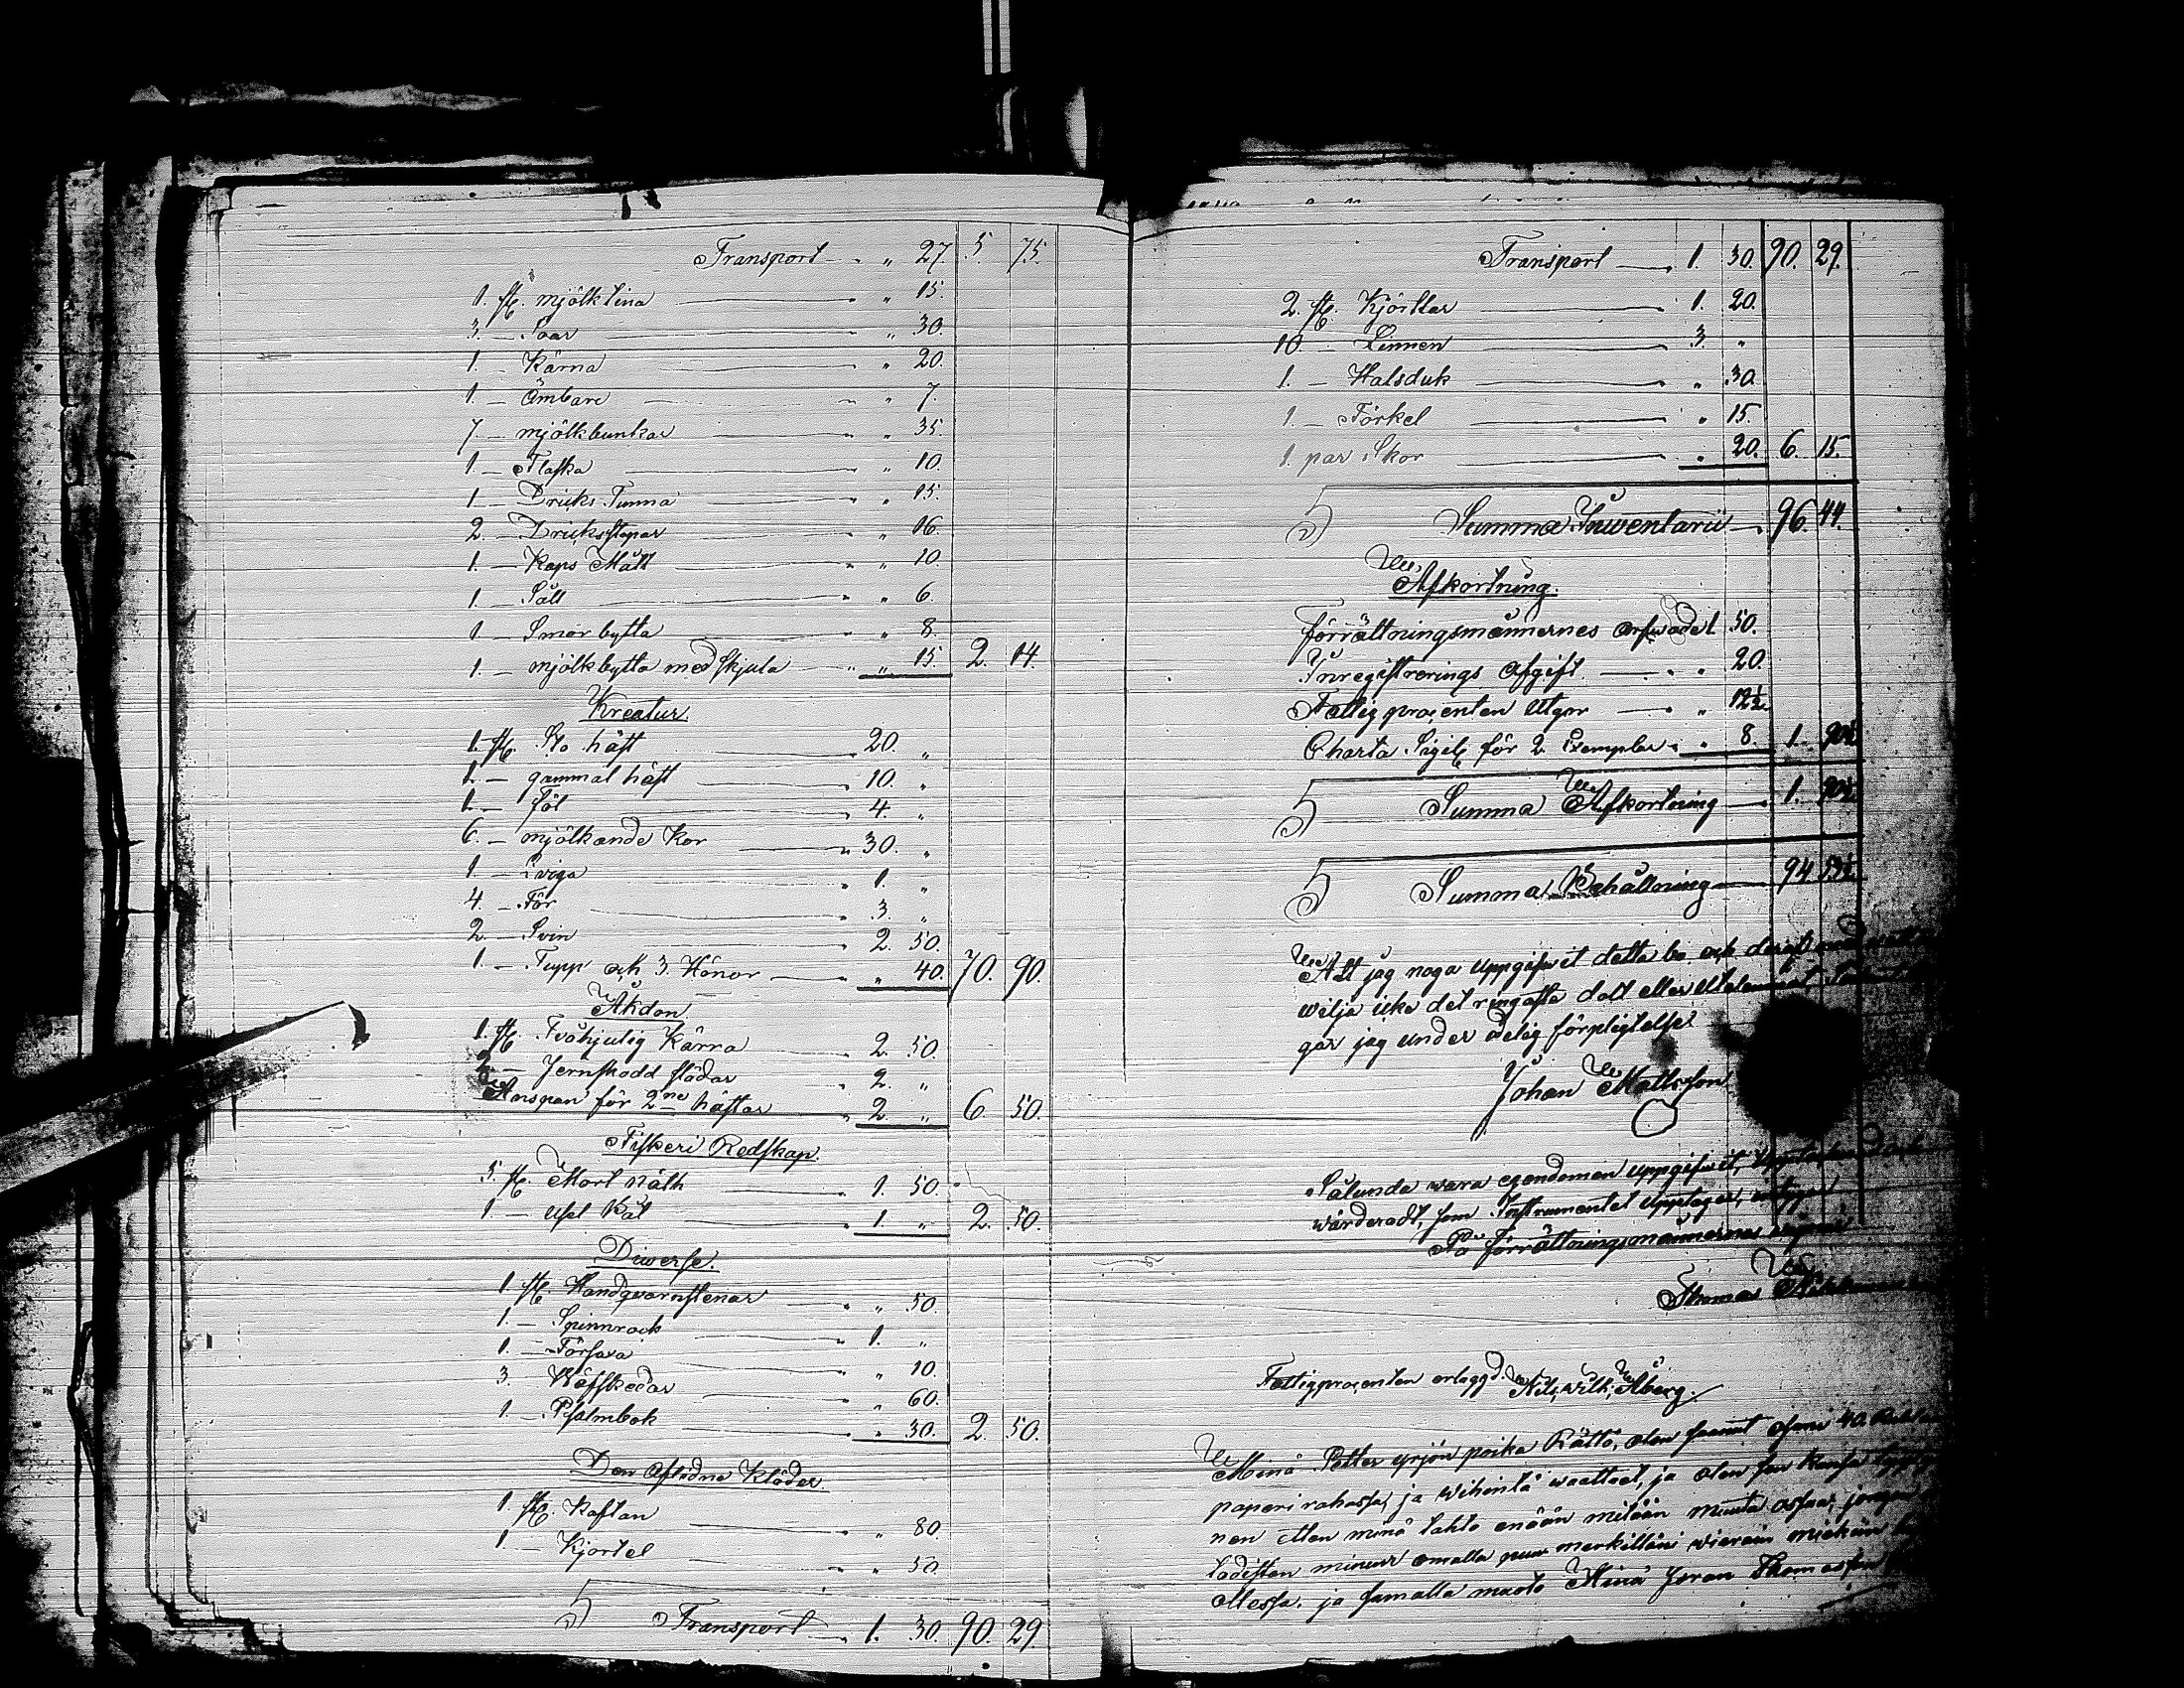 Transport — „ 27. 5. 75.
1. st. mjölktina — „ 15.
3. — Soar — „ 30.
1. — Kärna — „ 20.
1. — Ämbare — „ 7.
7. — mjölkbunkar — „ 35.
1. — Flaska — „ 10.
1. — Dricks Tunna — „ 15.
2. — Dricksstopar — „ 16.
1. — Kaps Mått — „ 10.
1. — Såll — „ 6.
1. — Smör bytta — „ 8.
1. — mjölkbytta med Skjula — „ 15. 2. 14.
Kreatur.
1. st. Sto häst — 20. „
1. — gammal häst — 10. „
1. — föl — 4. „
6. — mjölkande Kor — 30. „
1. — Qviga — 1. „
4. — Får — 3. „
2. — Svin — 2. 50.
1. — Tupp och 3. Hönor — „ 40. 70. 90.
Åkdon.
1. st. Tvåhjulig Kärra — 2. 50.
2. — Jernskodd slädar — 2. „
Anspan för 2ne hästar — 2. „ 6. 50.
Fiskeri Redskap.
5. st. Mort näth — 1. 50.
1. — usel Båt — 1. „ 2. 50.
Diverse.
1. st. Handqvarnstenar — „ 50.
1. — Spinnrock — 1. „
1. — Torfava — „ 10.
3. Väfskedar — „ 60.
1. — Psalmbok — „ 30. 2. 50.
Den Aflidne Kläder.
1. st. Kaftan — „ 80.
1. — Kjortel — „ 50.
Transport — 1. 30. 90. 29.
Transport — 1. 30. 90. 29.
2. st. Kjörtlar — 1. 20.
10. — Linnen — 3. „
1. — Halsduk — „ 30.
1. — Förkel — „ 15.
1. par Skor — „ 20. 6. 15.
Summa Inventarii — 96. 44.
Afkortning.
förrättningsmännernes arfwode 1. 50.
Inregistrerings afgift. — „ 20.
Fattigprocenten utgör — „ 12½
Charta Sigil. för 2 Exemplar — „ 8 1. 90½
Summa Afkortning — 1. 90½
Summa Behållning — 94. 53½
Att jag noga uppgifwit detta bo och
wilja icke det ringaste dolt eller
gar jag under edelig förpligtelse
Johan Mattsson
Sålunda wara egendomen uppgifwit,
wärderadt, som Instrumentet upptager,
På förrättningsmännernas wägnar
Thomas
Fattigprocenten erlagd. Nils Wilh: Åberg.
Minä Petter yrjön poika Rättö, olen saanut
paperi rahassa, ja wihintä waatteet, ja olen
nen etten minä tahto enään mitään muuta ossaa,
todistan minun omalla puu merkilläni wieraan miehän
ollessa. ja samalla muoto Minä Jöran Thomasson